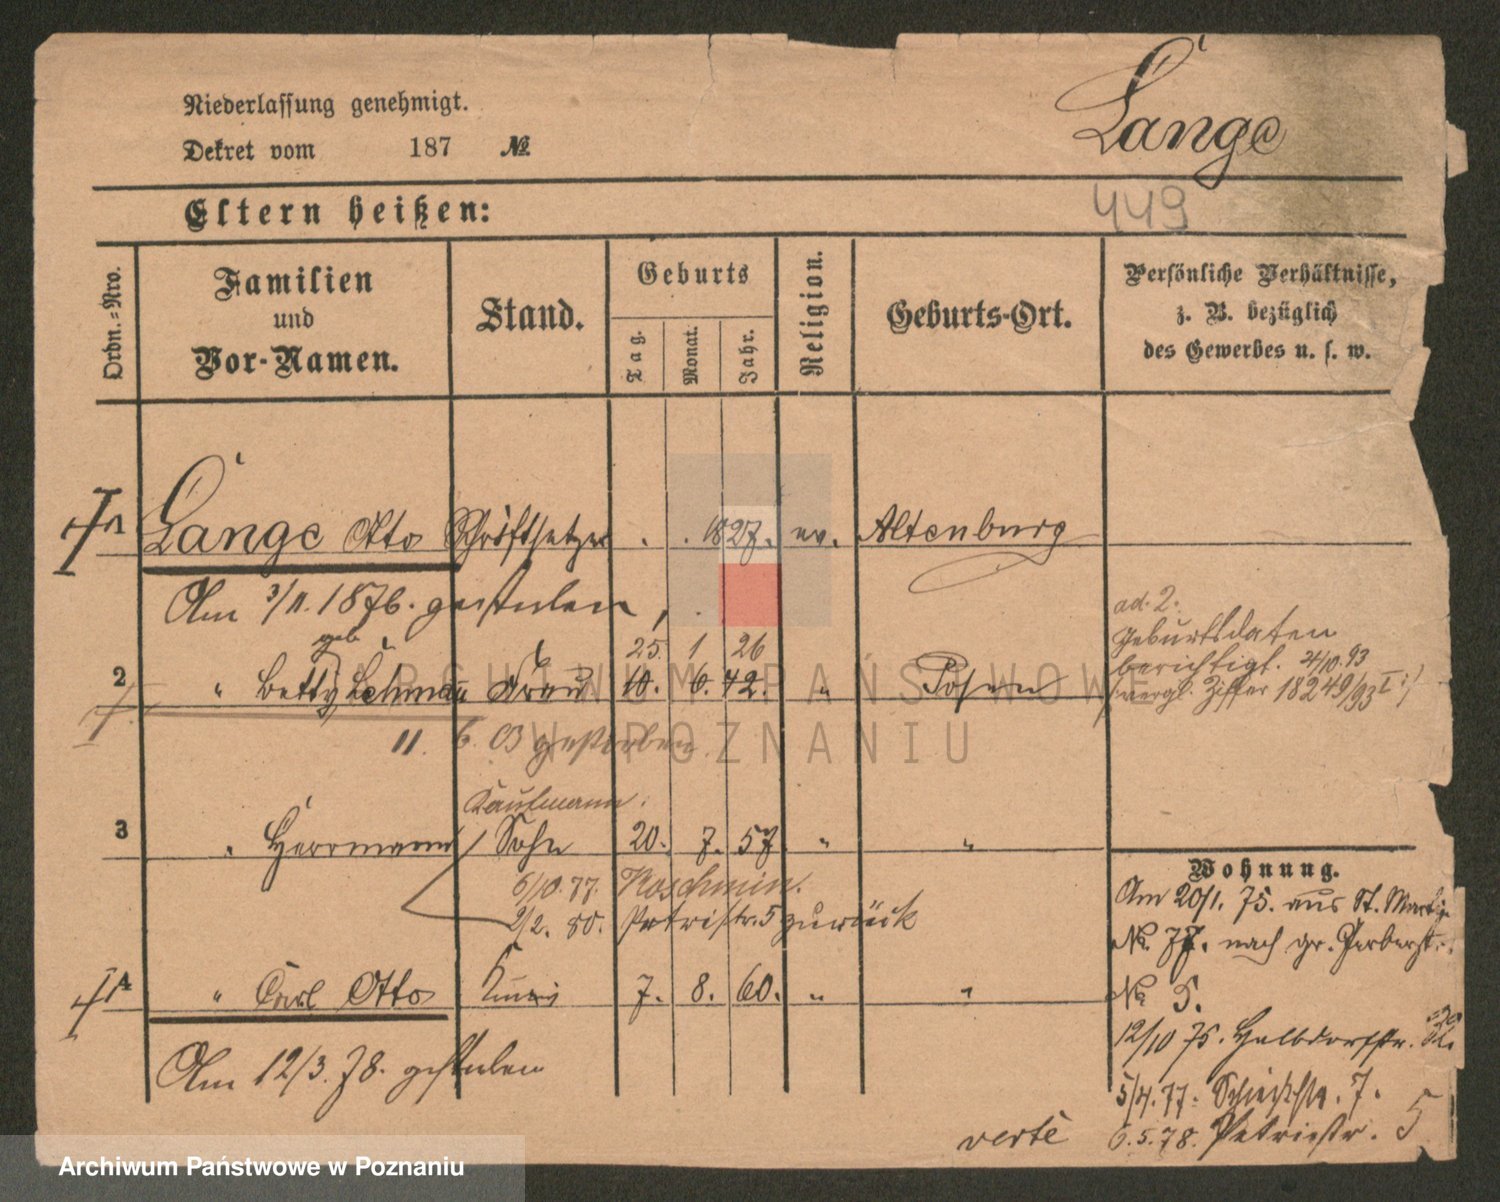 Niederlassung genehmigt.
Dekret vom 187 №
Lange
449
Eltern heißen:
Ordn.-Nro.
Familien und Vor-Namen.
Stand.
Geburts
Tag. Monat. Jahr.
Religion.
Geburts-Ort.
Persönliche Verhältnisse, z. B. bezüglich des Gewerbes u. s. w.
1 Lange Otto Schriftsetzer . . 1827. ev. Altenburg
Am 3/11. 1876. gestorben
geb.
25. 1 26
2 " Betty Lehmann Frau 10. 6. 42. " Posen
ad. 2.
Geburtsdaten
berichtigt. 24/10.93
vergl. Ziffer 18249/93 I
11. 6. 03 gestorben
Kaufmann.
3 " Herrmann Sohn 20. 7. 57 " "
6/10.77. Koschmin.
2/2. 80. Petristr. 5 zurück
4 " Carl Otto 7. 8. 60. " "
Am 12/3. 78. gestorben
Wohnung.
Am 20/1. 75. aus St. Martin
No. 77. nach gr. Gerberstr.
No 5.
12/10 75. Halbdorfstr.
5/4. 77. 7.
6. 5. 78. Petristr. 5
verte
ARCHIWUM PAŃSTWOWE
W POZNANIU
Archiwum Państwowe w Poznaniu